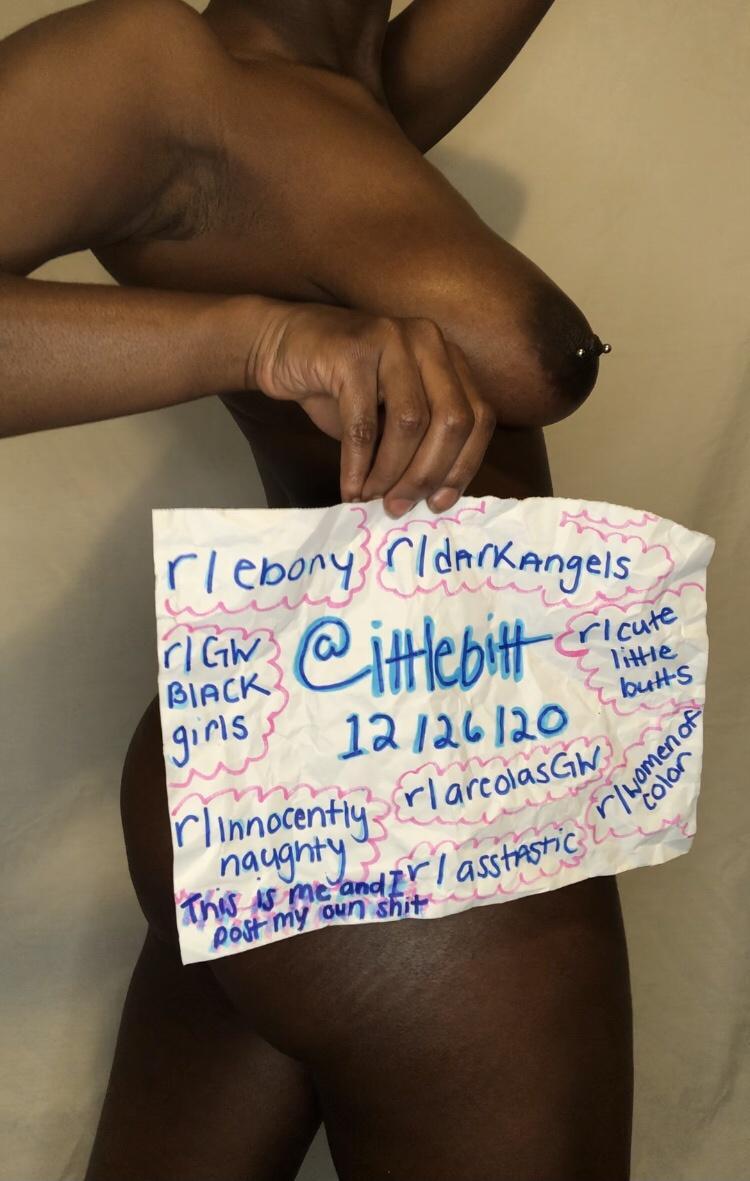 r/ebony
r/darkAngels
r/GW
BlACK
girls
@ittlebitt
12/26/20
r/cute
little
butts
r/women of
color
r/areolasGW
r/Innocently
naughty
r/asstastic
This is me and I
post my own shit